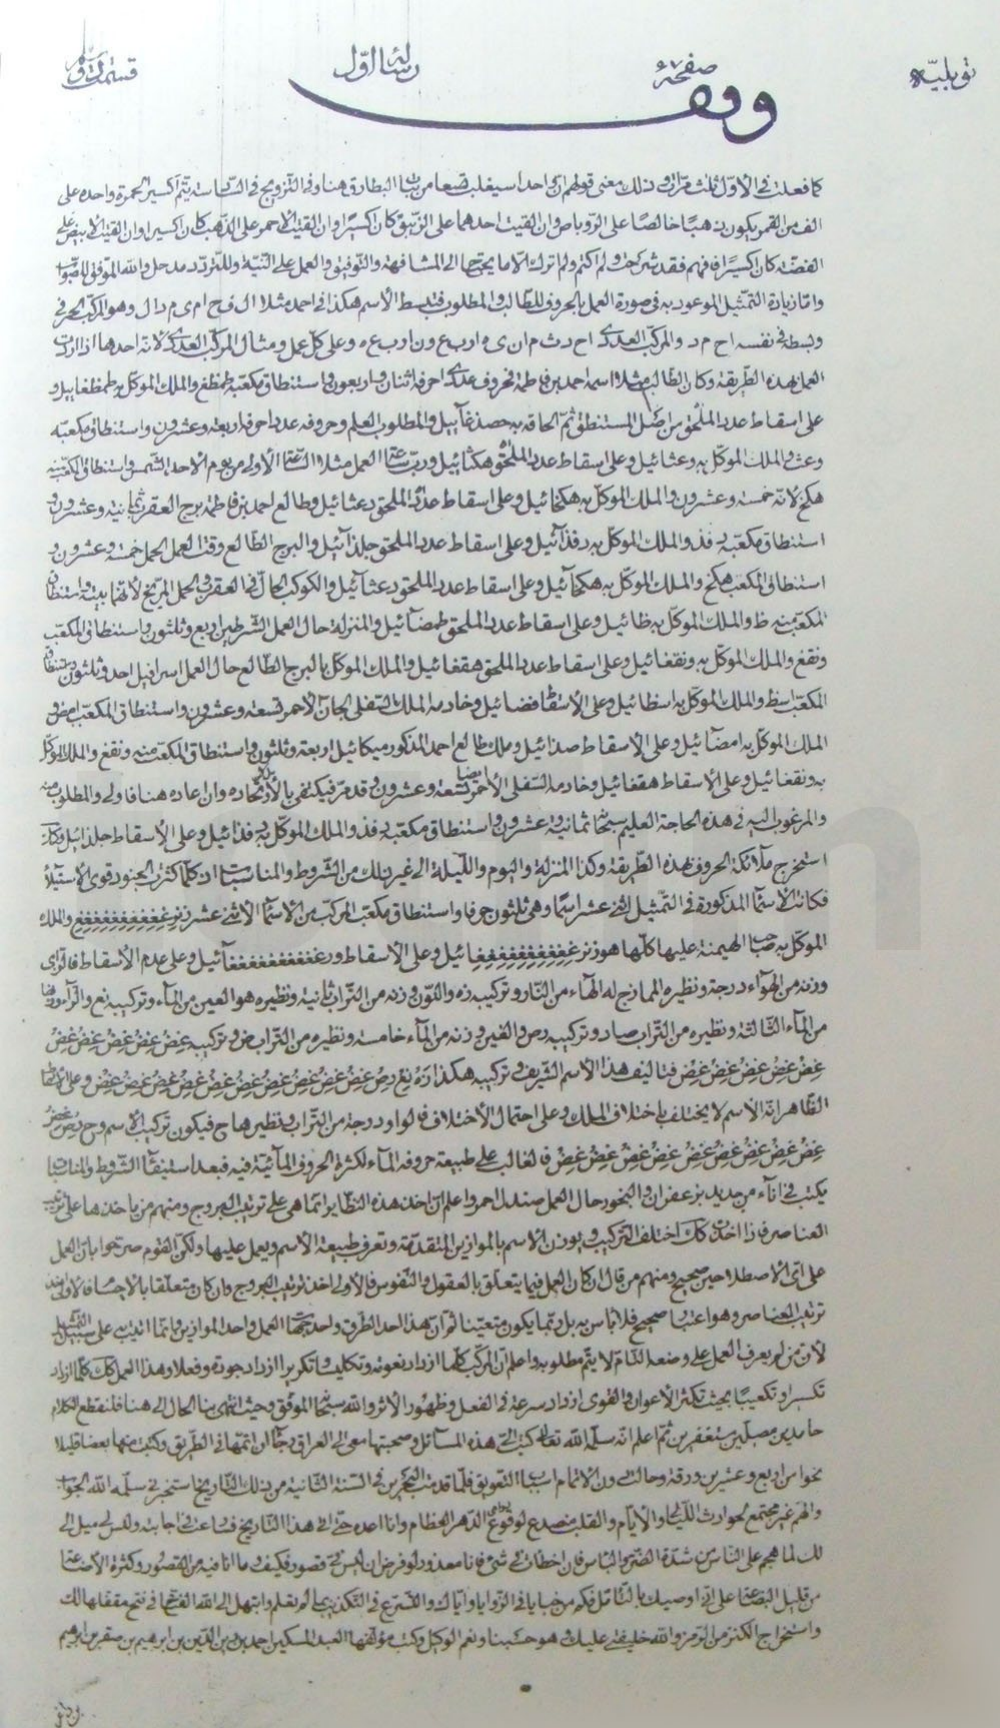 توبلیّه
صفحهٔ ۶۷
رسالهٔ اوّل
وقف
كما فعلت في الأوّل ثلث مرّات وذلك معنى قولهم ان واحدا سيغلب تسعا من بنات البطارق هنا وفي التزويج في السّادسة يتمّ اكسير الحمرة واحده على
الف من القمر يكون ذهبا خالصا على الرّوباص وان القيت احدهما على الزّيبق كان اكسيرا وان القيت الأحمر على الذّهب كان اكسيرا وان القيت الابيض على
الفضّة كان اكسيرا فافهم فقد شرحت ولم اكتم ولم اترك الّا ما يحتاج الى المشافهة والتوفيق والعمل على النيّة وللتردّد مدخل والله الموفّق للصّواب
وامّا زيادة التمثيل الموعود به في صورة العمل بالحروف للطّالب والمطلوب فتبسط الأسم هكذا في احمد مثلا ال ف ح ا م ى م د ا ل وهو المركّب الحرفي
وبسطه في نفسه ا ح م د والمركّب العددى ا ح د ث م ا ن ى ه ا ر ب ع و ن ا ر ب ع ه وعلى كلّ عمل ومثال المركّب العددى لانّه احدها اذا اردت
العمل بهذه الطّريقة وكان الطّالب مثلا اسمه احمد بن فاطمة فحروف عددى احرفه اثنان واربعون واستنطاق مكعّبه طمظغ والملك الموكّل به طمظغاييل و
على اسقاط عدد الملحق من اصل المستنطق ثمّ الحاقه به حصذغائيل والمطلوب العلم وحروفه عددا احرفا اربعة وعشرون واستنطاق مكعّبه
والملك الموكّل به وعثائيل وعلى اسقاط عدد الملحق هكثائيل وربّ ساعة العمل مثلا السّاعة الأولى من يوم الأحد الشّمس واستنطاق المكعّب منه
هكخ لانّه خمسة وعشرون والملك الموكّل به هكخائيل وعلى اسقاط عدد الملحق دعثائيل وطالع احمد بن فاطمة برج العقرب ثمانية وعشرون و
استنطاق مكعّبه والملك الموكّل به وعلى اسقاط عدد الملحق جلذائيل والبرج الطّالع وقت العمل الحمل خمسة وعشرون و
استنطاق المكعب هكخ والملك الموكّل به هكخائيل وعلى اسقاط عدد الملحق دعثائيل والكوكب الحالّ في العقرب والحمل المرّيخ واستنطاق
المكعّب منه والملك الموكّل به ظائيل وعلى اسقاط عدد الملحق طمضائيل والمنزلة حال العمل الشّرطين اربع وثلثون واستنطاق المكعّب
ونقغ والملك الموكّل به ونقغائيل وعلى اسقاط عدد الملحق هقغائيل والملك الموكّل بالبرج الطّالع حال العمل اسرافيل احد وثلثون واستنطاق
المكعّب اسظ والملك الموكّل به اسظائيل وعلى الأسقاط وخادمه الملك السّفلى الجانّ الأحمر تسعة وعشرون واستنطاق المكعّب امض و
الملك الموكّل به امضائيل وعلى الاسقاط صذائيل وملك طالع احمد المذكور ميكائيل اربعة وثلثون واستنطاق المكعّب منه ونقغ والملك الموكّل
به ونقغائيل وعلى الاسقاط هقغائيل وخادمه السّفلى الأحمر ايضا تسعة وعشرون وقد مرّ فيكتفى بالأوّل لاتّحاده وان اعاده هنا فاولى والمطلوب منه
والمرغوب اليه في هذه الحاجة العليم سبحانه ثمانية وعشرون واستنطاق مكعّبه والملك الموكّل به وعلى الأسقاط جلذائيل وكذا
استخرج ملائكة الحروف بهذه الطّريقة وكذا المنزلة واليوم واللّيلة الى غير ذلك من الشّروط والمناسبات اذ كلّما كثرت الجنود قوى الأستيلاء
فكانت الأسماء المذكورة في التمثيل اثنى عشر اسما وهي ثلثون حرفا واستنطاق مكعّب المركّب من الاسماء الأثنى عشر والملك
الموكّل به صاحب الهيمنة عليها كلّها وعلى الأسقاط وعلى عدم الأسقاط
وزنه من الهوآء درجة ونظيره الممازج له الهآء من النّار وتركيبه زه والنّون وزنه من التّراب ثانية ونظيره هو العين من المآء وتركيبه نع والرّآء
من المآء الثّالثة ونظيره من التّراب صاد وتركيبه رص والغين وزنه من المآء خامسة ونظيره من التّراب ض وتركيبه غض غض غض غض غض
غض غض غض غض غض فتاليف هذا الأسم الشّريف وتركيبه هكذا
الظّاهر انّه الأسم لا يختلف باختلاف الملك وعلى احتمال الأختلاف فالواو درجة من التّراب ونظيرها ج فيكون تركيب الأسم
غض غض غض غض غض غض غض غض فالغالب على طبيعة حروفه المآء لكثرة الحروف المآئيّة فيه فبعد استيفاء الشّروط والمناسبات
يكتب في انآء من حديد بزعفران والبخور حال العمل صندل احمر واعلم انّ اخذ هذه النّظاير انّما هي على ترتيب البروج ومنهم من ياخذها على ترتيب
العناصر فاذا اخذت كلّ اختلف التّركيب ويوزن الأسم بالموازين المتقدّمة وتعرف طبيعة الأسم ويعمل عليها ولكنّ القوم صرّحوا بانّ العمل
على اىّ الأصطلاحين صحيح ومنهم من قال ان كان العمل فيما يتعلّق بالعقول والنّفوس فالأولى اخذ ترتيب البروج وان كان متعلّقا بالأجسام فالأولى اخذ
ترتيب العناصر وهو اعتبار صحيح فلا باس به بل ربّما يكون متعيّنا ثمّ انّ هذا احد الطّرق واحد العمل واحد الموازين وانّما اتيت به على سبيل التّمثيل
لأنّ من لم يعرف العمل على وضعه التّام لا يتمّ مطلوبه واعلم انّ المركّب كلّما ازداد نعومة وتكليسا وتكريرا ازداد جودة وفعلا وهذا العمل كذلك كلّما ازداد
تكسيرا وتكعيبا بحيث تكثر الأعوان والقوى ازداد سرعة في الفعل وظهور الأثر والله سبحانه الموفّق وحيث انتهى بنا الحال الى هنا فلنقطع الكلام
حامدين مصلّين مستغفرين ثمّ اعلم انّه سلّمه الله تعالى كتب الىّ هذه المسائل وصحبتها معى الى العراق رجآء ان اتمّها في الطّريق وكتبت منها بعضا قليلا
نحوا من اربع وعشرين ورقة وحالت دون الاتمام اسباب التعويق فلمّا قدمت البحرين في السّنة الثّانية من ذلك التّاريخ استنجزنى سلّمه الله الجواب
والهمّ غير مجتمع لحوادث اللّيالى والأيّام والقلب منصدع لوقوع دواهى الدّهر العظام وانا اعده حتّى الى هذا التّاريخ فساعى في اجابته وليس لى ميل الى
ذلك لما هجم على النّاس من شدّة الضّرّ والبأس فان اخطأت في شئ فانا معذور لو فرض ان ليس لى قصور فكيف وما انا فيه من القصور وكثرة الأضاعة
من قليل البضاعة على انّى اوصيك بالتأمّل فكم من خبايا في الزّوايا وايّاك والتّسرّع في التكذيب بما لم تعلم وابتهل الى الله الفتّاح في فتح مقفلها لك
واستخراج الكنز من الرّمز والله خليفتى عليك وهو حسبنا ونعم الوكيل وكتب مؤلّفها العبد المسكين احمد بن زين الدّين بن ابرهيم بن صقر بن ابرهيم